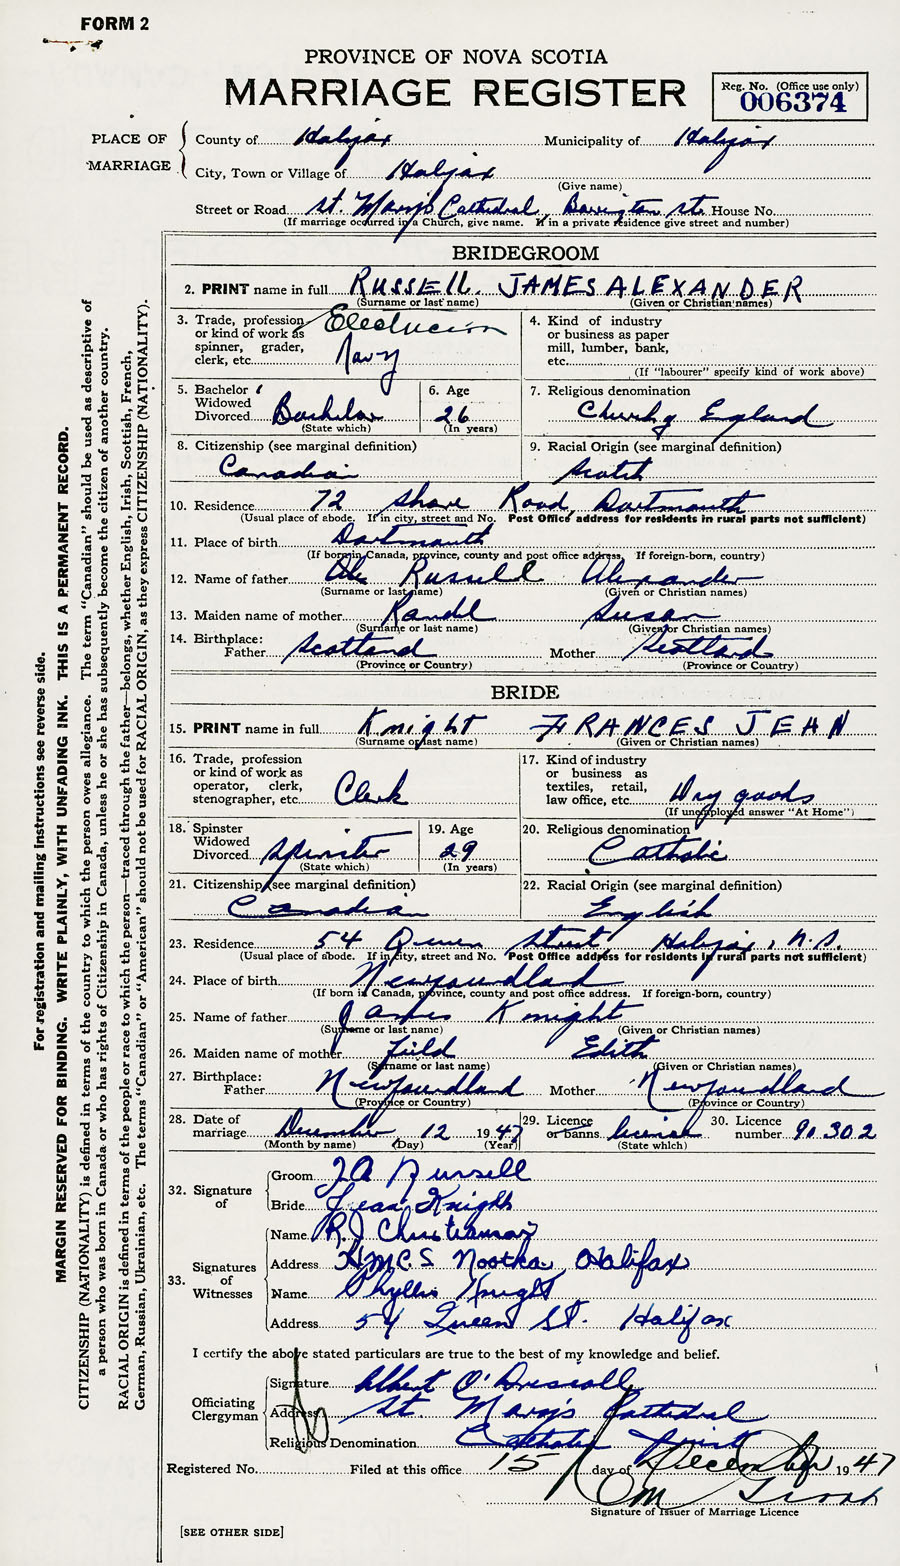 FORM 2
PROVINCE OF NOVA SCOTIA
MARRIAGE REGISTER
Reg. No. (Office use only)
006374
PLACE OF MARRIAGE
County of Halifax Municipality of Halifax
City, Town or Village of Halifax
(Give name)
Street or Road St. Mary's Cathedral, Barrington St. House No.
(If marriage occurred in a Church, give name. If in a private residence give street and number)
BRIDEGROOM
2. PRINT name in full RUSSELL JAMES ALEXANDER
(Surname or last name) (Given or Christian names)
3. Trade, profession or kind of work as spinner, grader, clerk, etc. Electrician Navy
4. Kind of industry or business as paper mill, lumber, bank, etc.
(If "labourer" specify kind of work above)
5. Bachelor Widowed Divorced Bachelor
(State which)
6. Age 26
(In years)
7. Religious denomination Church of England
8. Citizenship (see marginal definition) Canadian
9. Racial Origin (see marginal definition) Scotch
10. Residence 72 Shore Road, Dartmouth
(Usual place of abode. If in city, street and No. Post Office address for residents in rural parts not sufficient)
11. Place of birth Dartmouth
(If born in Canada, province, county and post office address. If foreign-born, country)
12. Name of father Russell Alexander
(Surname or last name) (Given or Christian names)
13. Maiden name of mother Randl Susan
(Surname or last name) (Given or Christian names)
14. Birthplace:
Father Scotland Mother Scotland
(Province or Country) (Province or Country)
BRIDE
15. PRINT name in full Knight FRANCES JEAN
(Surname or last name) (Given or Christian names)
16. Trade, profession or kind of work as operator, clerk, stenographer, etc. Clerk
17. Kind of industry or business as textiles, retail, law office, etc. Dry goods
(If unemployed answer "At Home")
18. Spinster Widowed Divorced Spinster
(State which)
19. Age 29
(In years)
20. Religious denomination Catholic
21. Citizenship (see marginal definition) Canadian
22. Racial Origin (see marginal definition) English
23. Residence 54 Queen Street Halifax, N.S.
(Usual place of abode. If in city, street and No. Post Office address for residents in rural parts not sufficient)
24. Place of birth Newfoundland
(If born in Canada, province, county and post office address. If foreign-born, country)
25. Name of father James Knight
(Surname or last name) (Given or Christian names)
26. Maiden name of mother Field Edith
(Surname or last name) (Given or Christian names)
27. Birthplace:
Father Newfoundland Mother Newfoundland
(Province or Country) (Province or Country)
28. Date of marriage December 12 1947
(Month by name) (Day) (Year)
29. Licence or banns license
(State which)
30. Licence number 90302
32. Signature of
Groom JA Russell
Bride Jean Knight
33. Signatures of Witnesses
Name R.J. Christianson
Address HMCS Nootka, Halifax
Name Phyllis Knight
Address 54 Queen St. Halifax
I certify the above stated particulars are true to the best of my knowledge and belief.
Officiating Clergyman
Signature Albert O'Driscoll
Address St. Mary's Cathedral
Religious Denomination Catholic Priest
Registered No. Filed at this office 15 day of December 1947
Signature of Issuer of Marriage Licence
[SEE OTHER SIDE]
For registration and mailing instructions see reverse side.
MARGIN RESERVED FOR BINDING. WRITE PLAINLY, WITH UNFADING INK. THIS IS A PERMANENT RECORD.
CITIZENSHIP (NATIONALITY) is defined in terms of the country to which the person owes allegiance. The term "Canadian" should be used as descriptive of
a person who was born in Canada or who has rights of Citizenship in Canada, unless he or she has subsequently become the citizen of another country.
RACIAL ORIGIN is defined in terms of the people or race to which the person—traced through the father—belongs, whether English, Irish, Scottish, French,
German, Russian, Ukrainian, etc. The terms "Canadian" or "American" should not be used for RACIAL ORIGIN, as they express CITIZENSHIP (NATIONALITY).